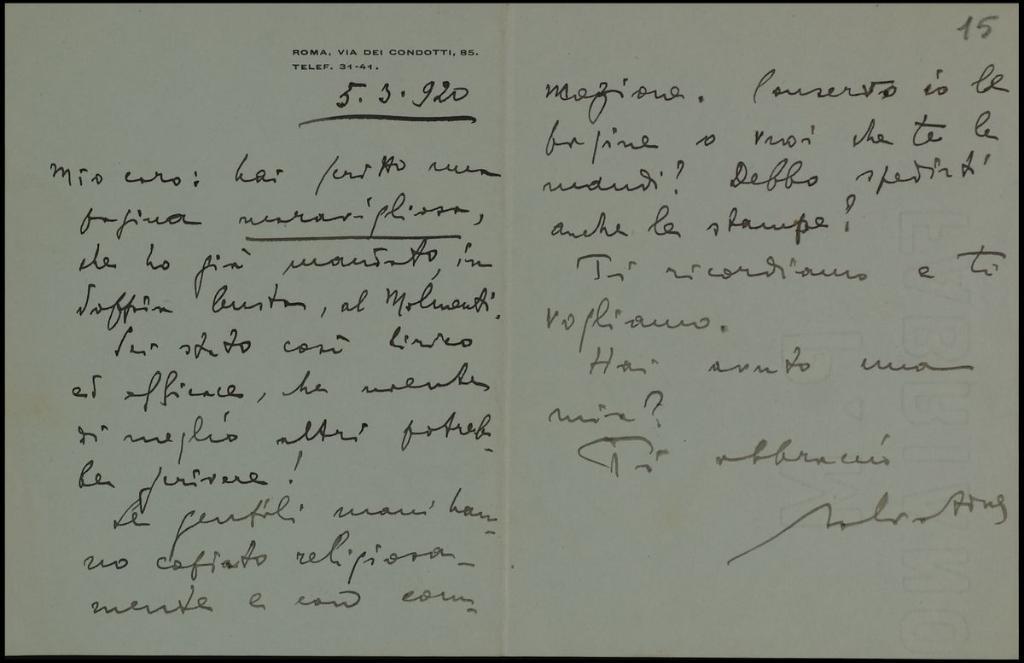 ROMA, VIA DEI CONDOTTI, 85.
TELEF. 31-41.
5.3.920
Mio caro: hai scritto una
pagina maravigliosa,
che ho già mandato, in
doppia busta, al Molmenti.
Sei stato così lirico
ed efficace, che niente
di meglio altri potreb-
be scrivere!
Le gentili mani han-
no copiato religiosa-
mente e con com-
15
mozione. Conservo io le
pagine o vuoi che te le
mandi? Debbo spedirti
anche le stampe?
Ti ricordiamo e ti
vogliamo.
Hai avuto una
mia?
Ti abbraccio
FABRIANO